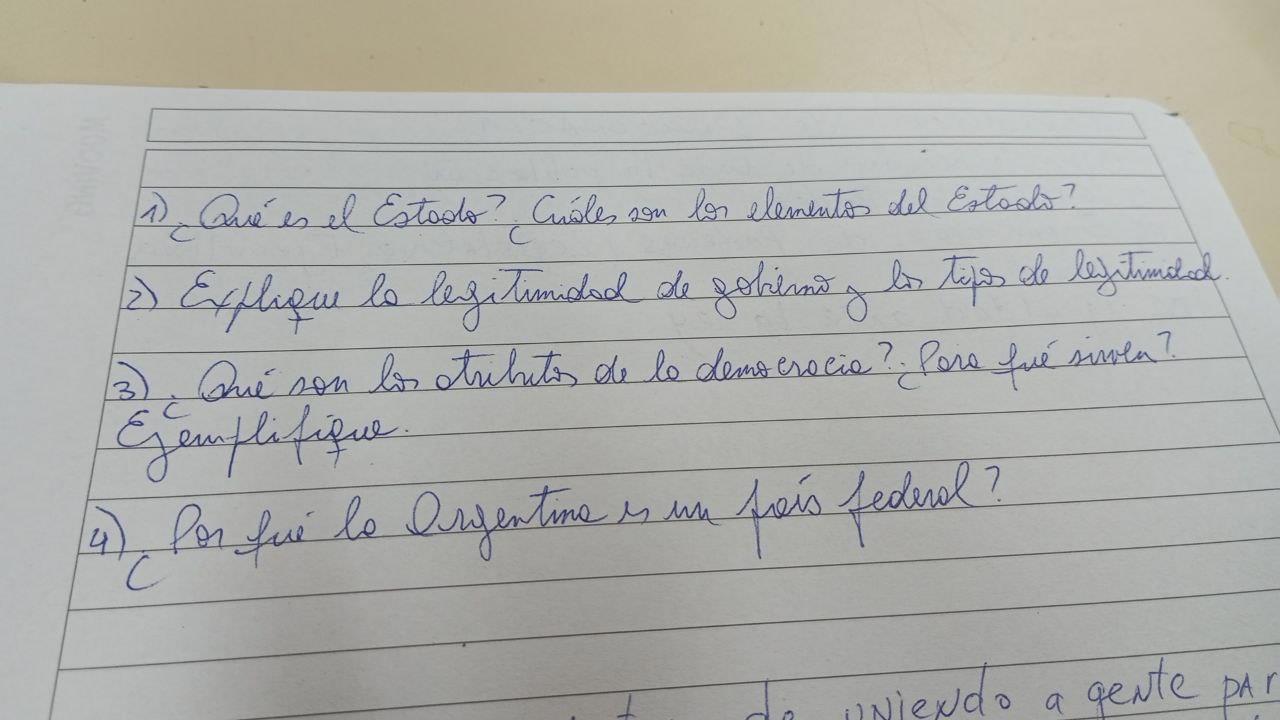 1) ¿Qué es el Estado? ¿Cuáles son los elementos del Estado?
2) Explique la legitimidad de gobierno y los tipos de legitimidad.
3) ¿Qué son los atributos de la democracia? ¿Para qué sirven?
Ejemplifique.
4) ¿Por qué la Argentina es un país federal?
uniendo a gente par